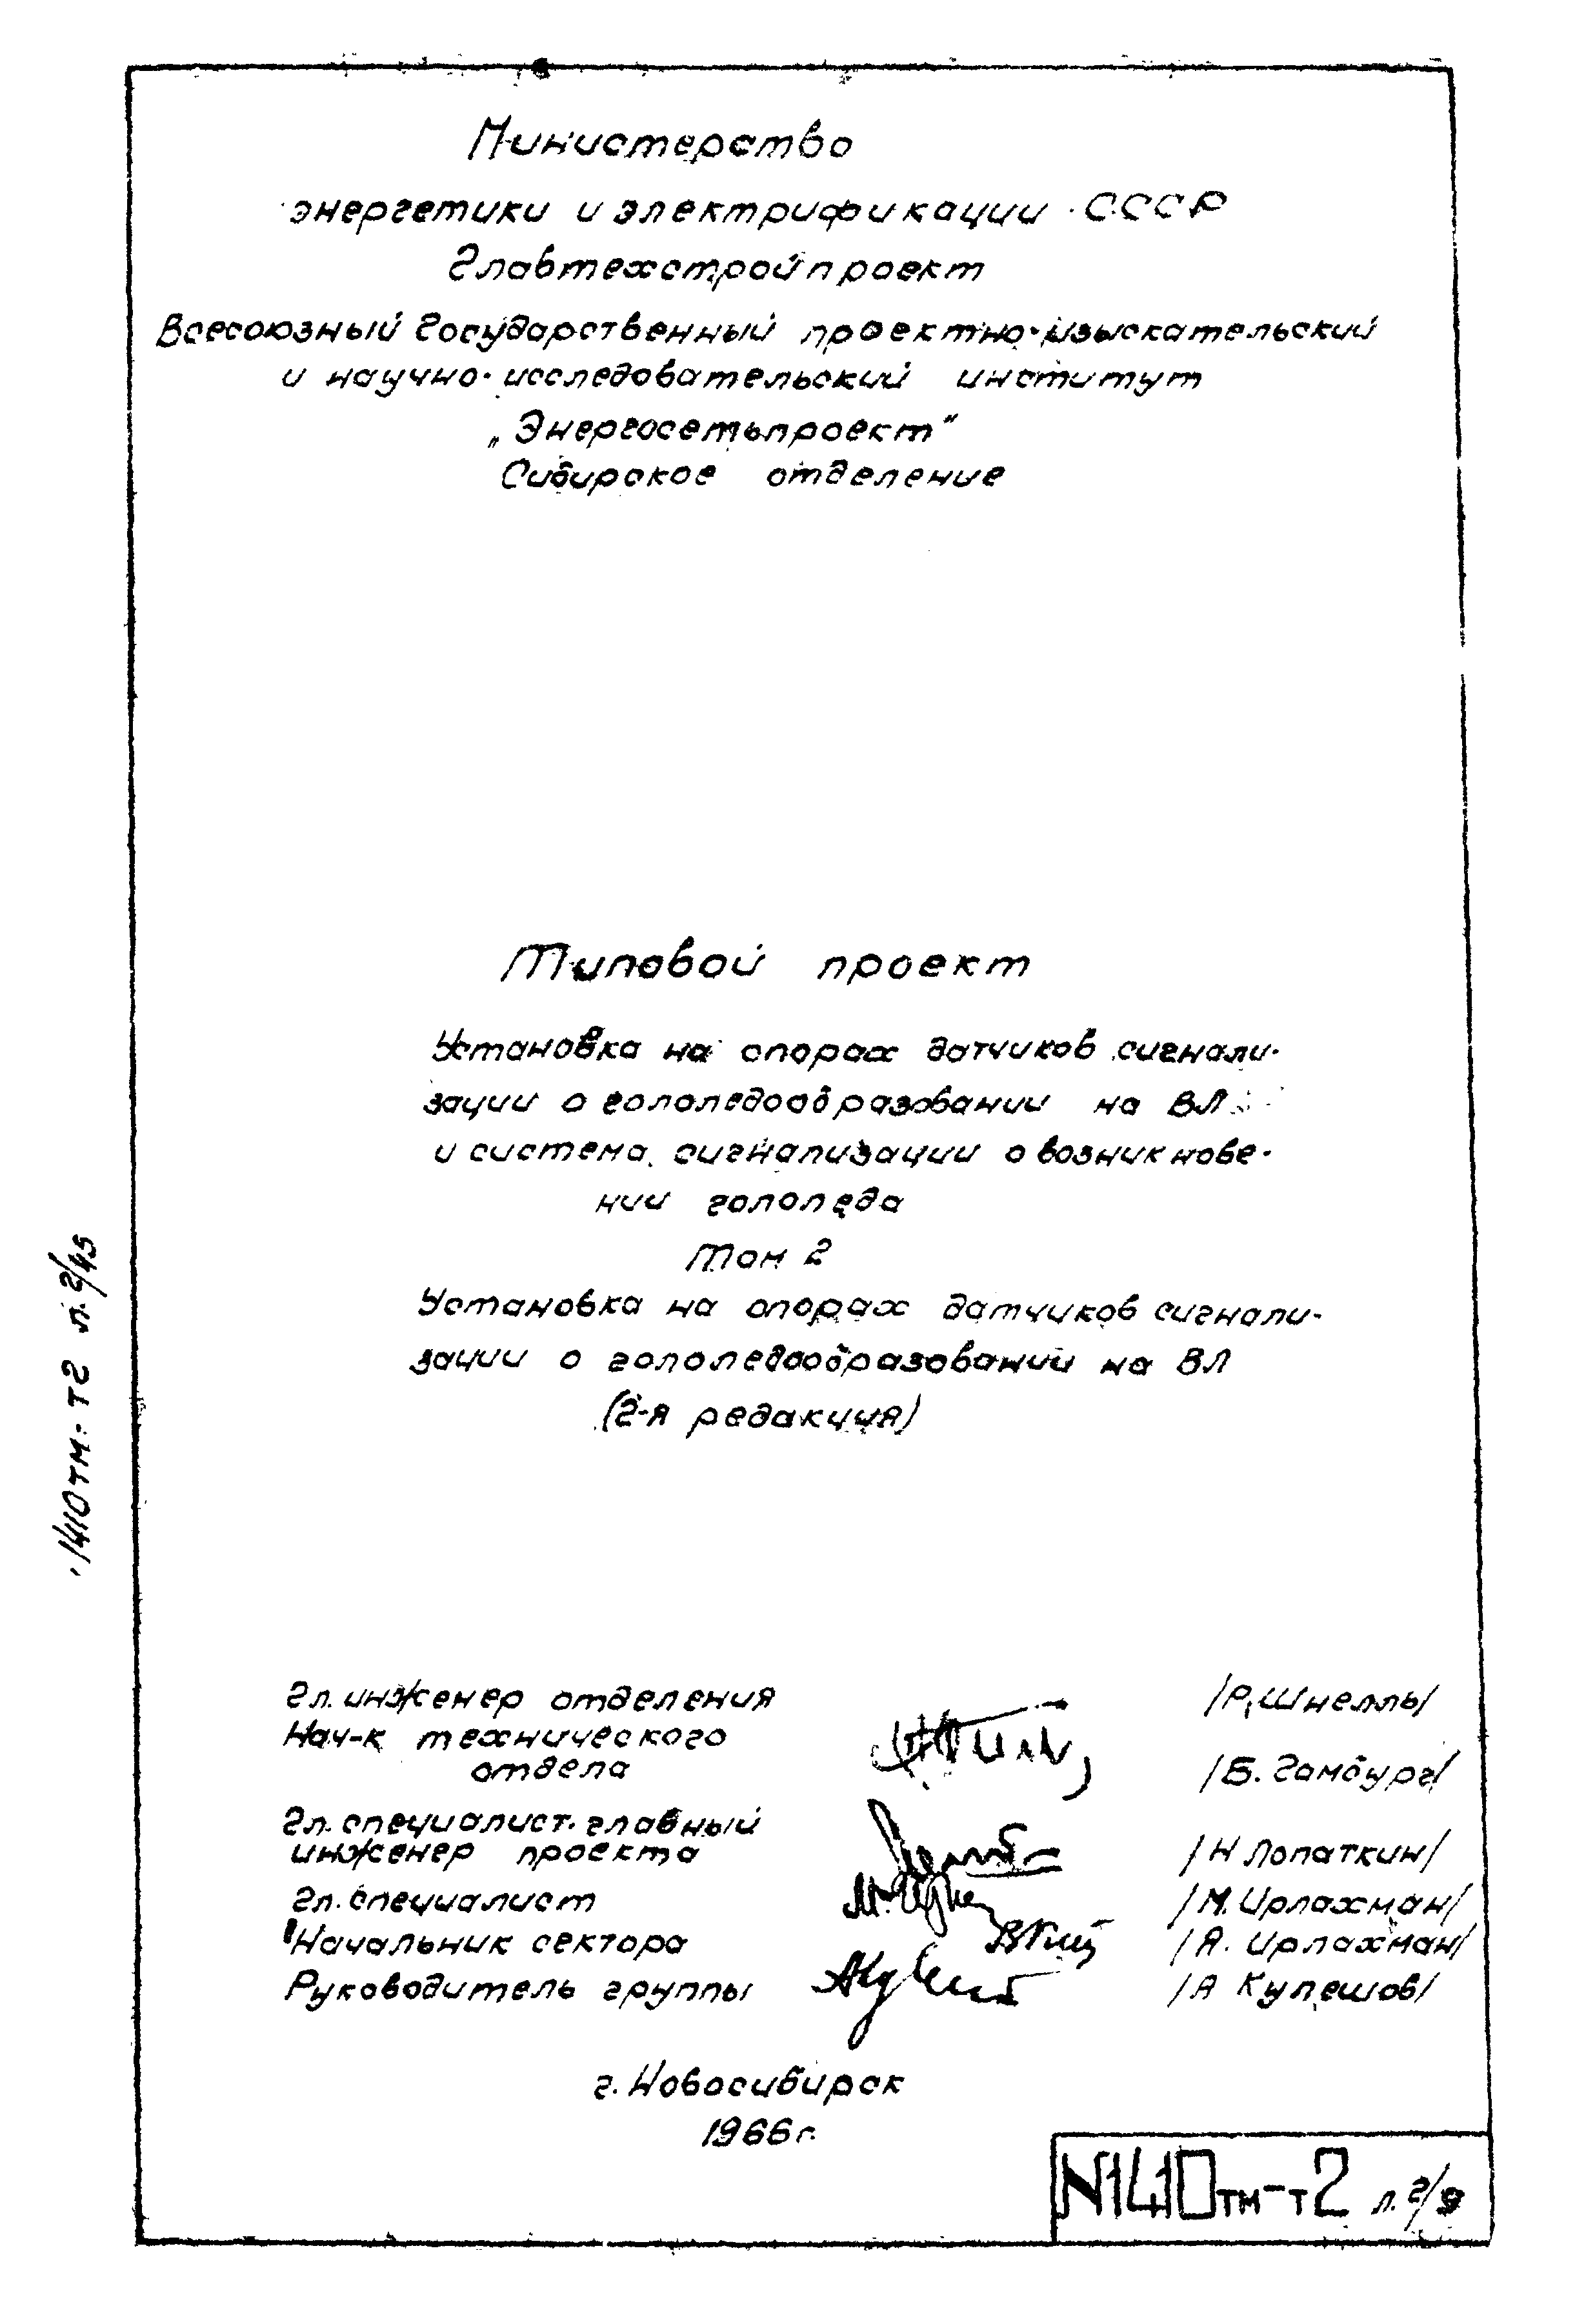 Министерство
энергетики и электрификации СССР
Главтехстройпроект
Всесоюзный Государственный проектно-изыскательский
и научно-исследовательский институт
„Энергосетьпроект“
Сибирское отделение
Типовой проект
Установка на опорах датчиков сигнали-
зации о гололедообразовании на ВЛ
и система сигнализации о возникнове-
нии гололеда
Том 2
Установка на опорах датчиков сигнали-
зации о гололедообразовании на ВЛ
(2-я редакция)
1410тм-т2 л. 2/45
Гл. инженер отделения /Р. Шнелль/
Нач-к технического
отдела /Б. Гамбург/
Гл. специалист. главный
инженер проекта /Н Лопаткин/
Гл. специалист /М. Ирлахман/
Начальник сектора /Я. Ирлахман/
Руководитель группы /А Кулешов/
г. Новосибирск
1966г.
N1410тм-т2 л. 2/9